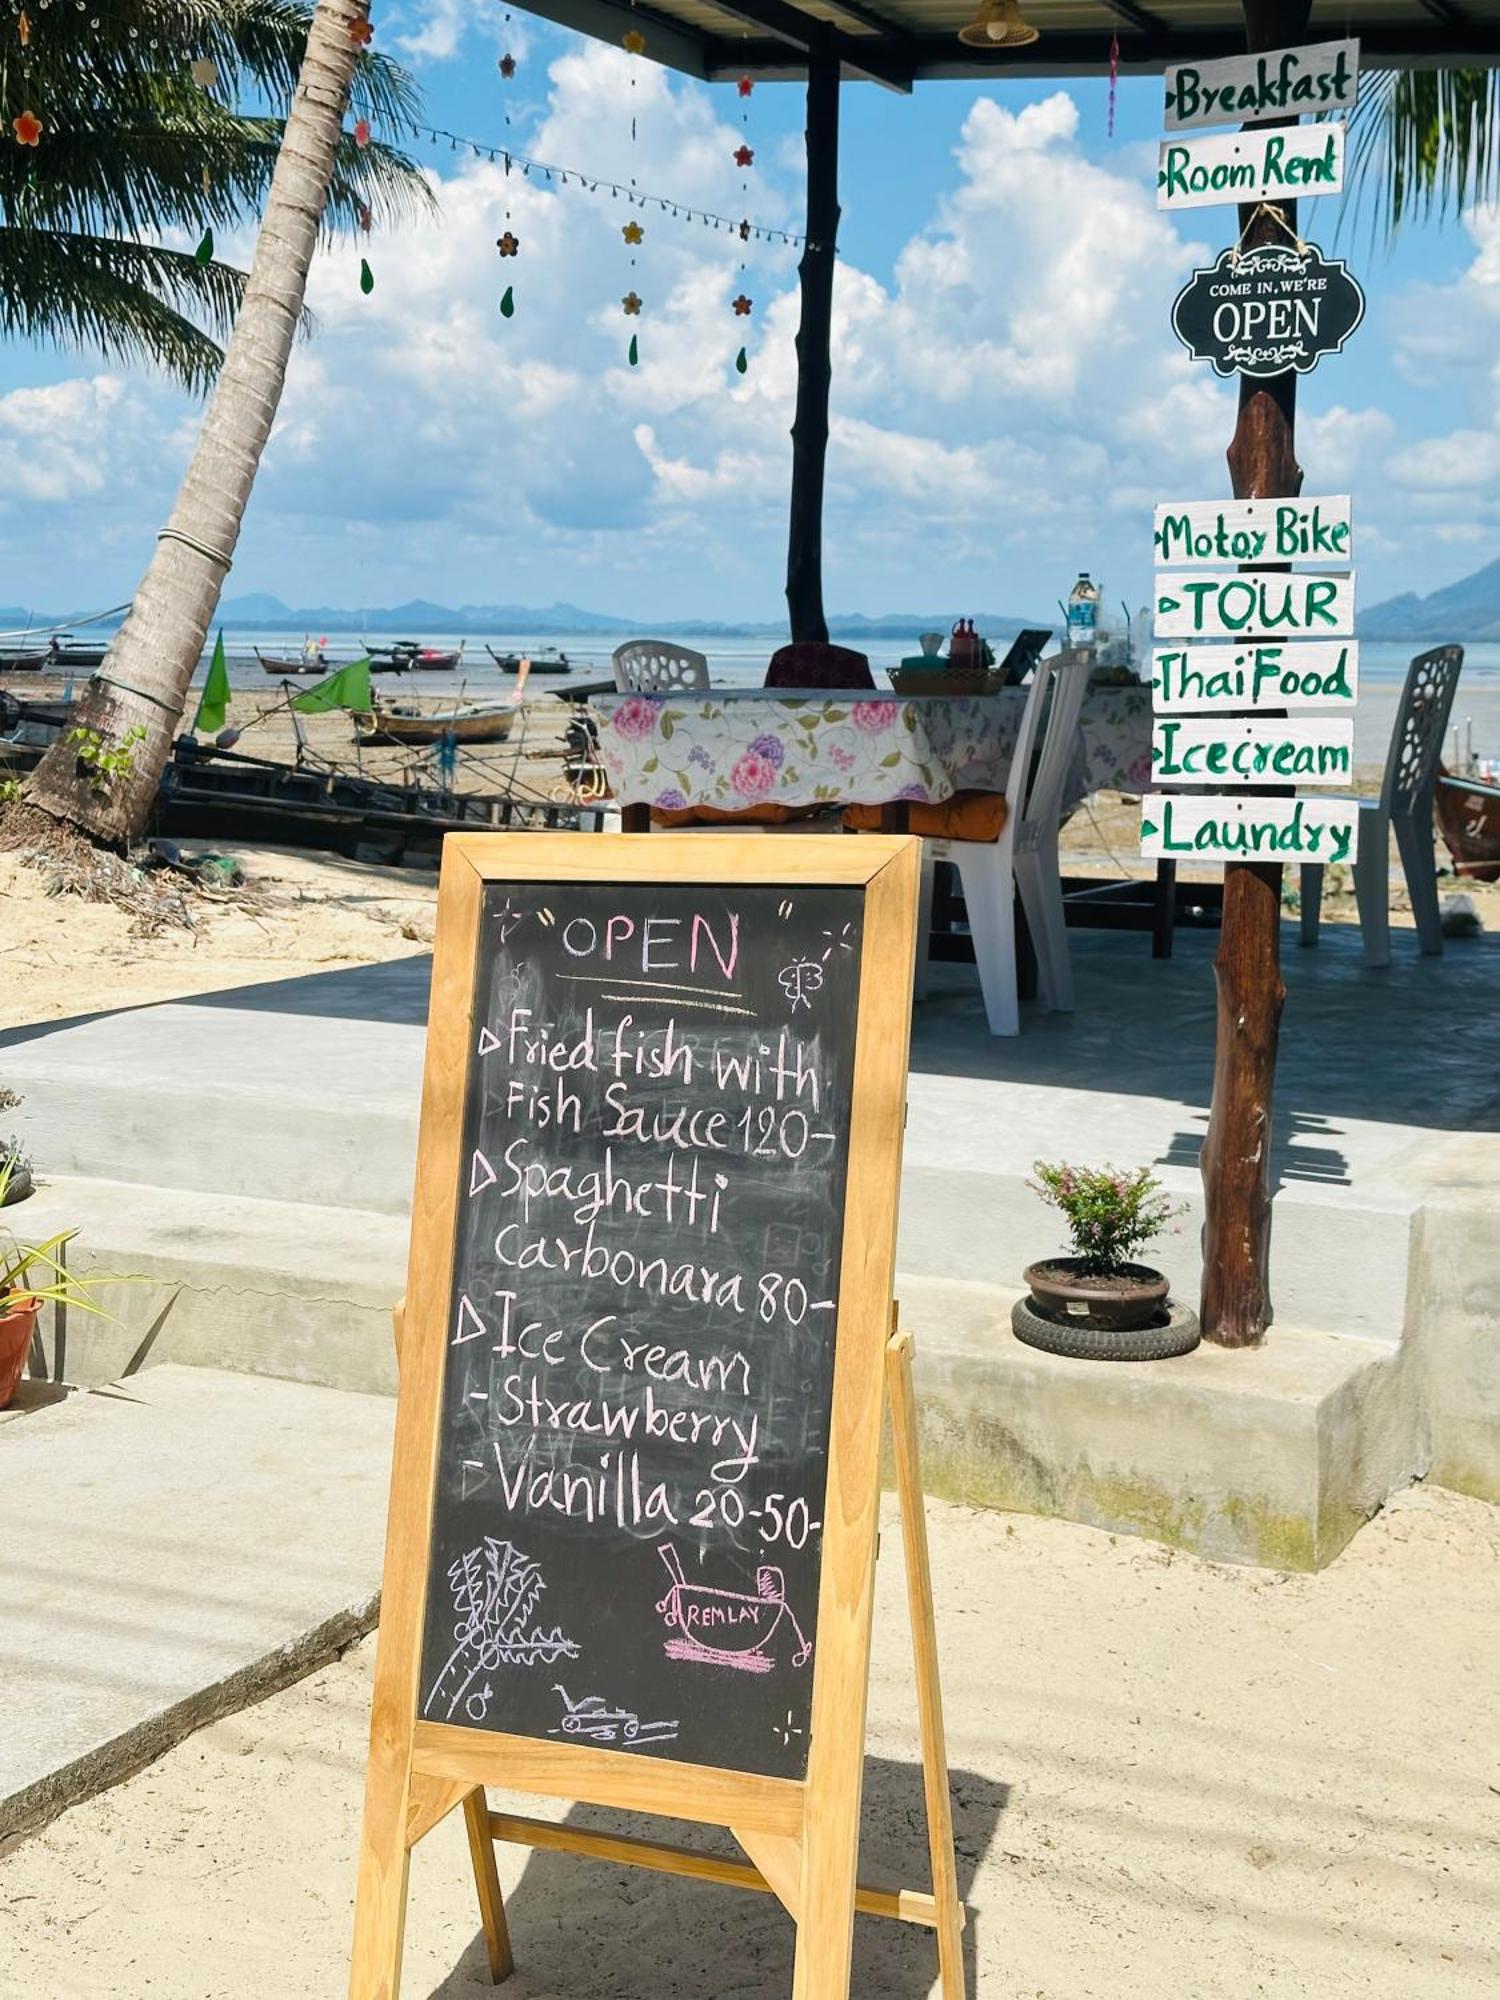 Breakfast
Room Rent
COME IN, WE'RE
OPEN
Motor Bike
TOUR
Thai Food
Icecream
Laundry
"OPEN"
Fried fish with
Fish Sauce 120-
Spaghetti
Carbonara 80-
Ice Cream
- Strawberry
- Vanilla 20-50-
REMLAY